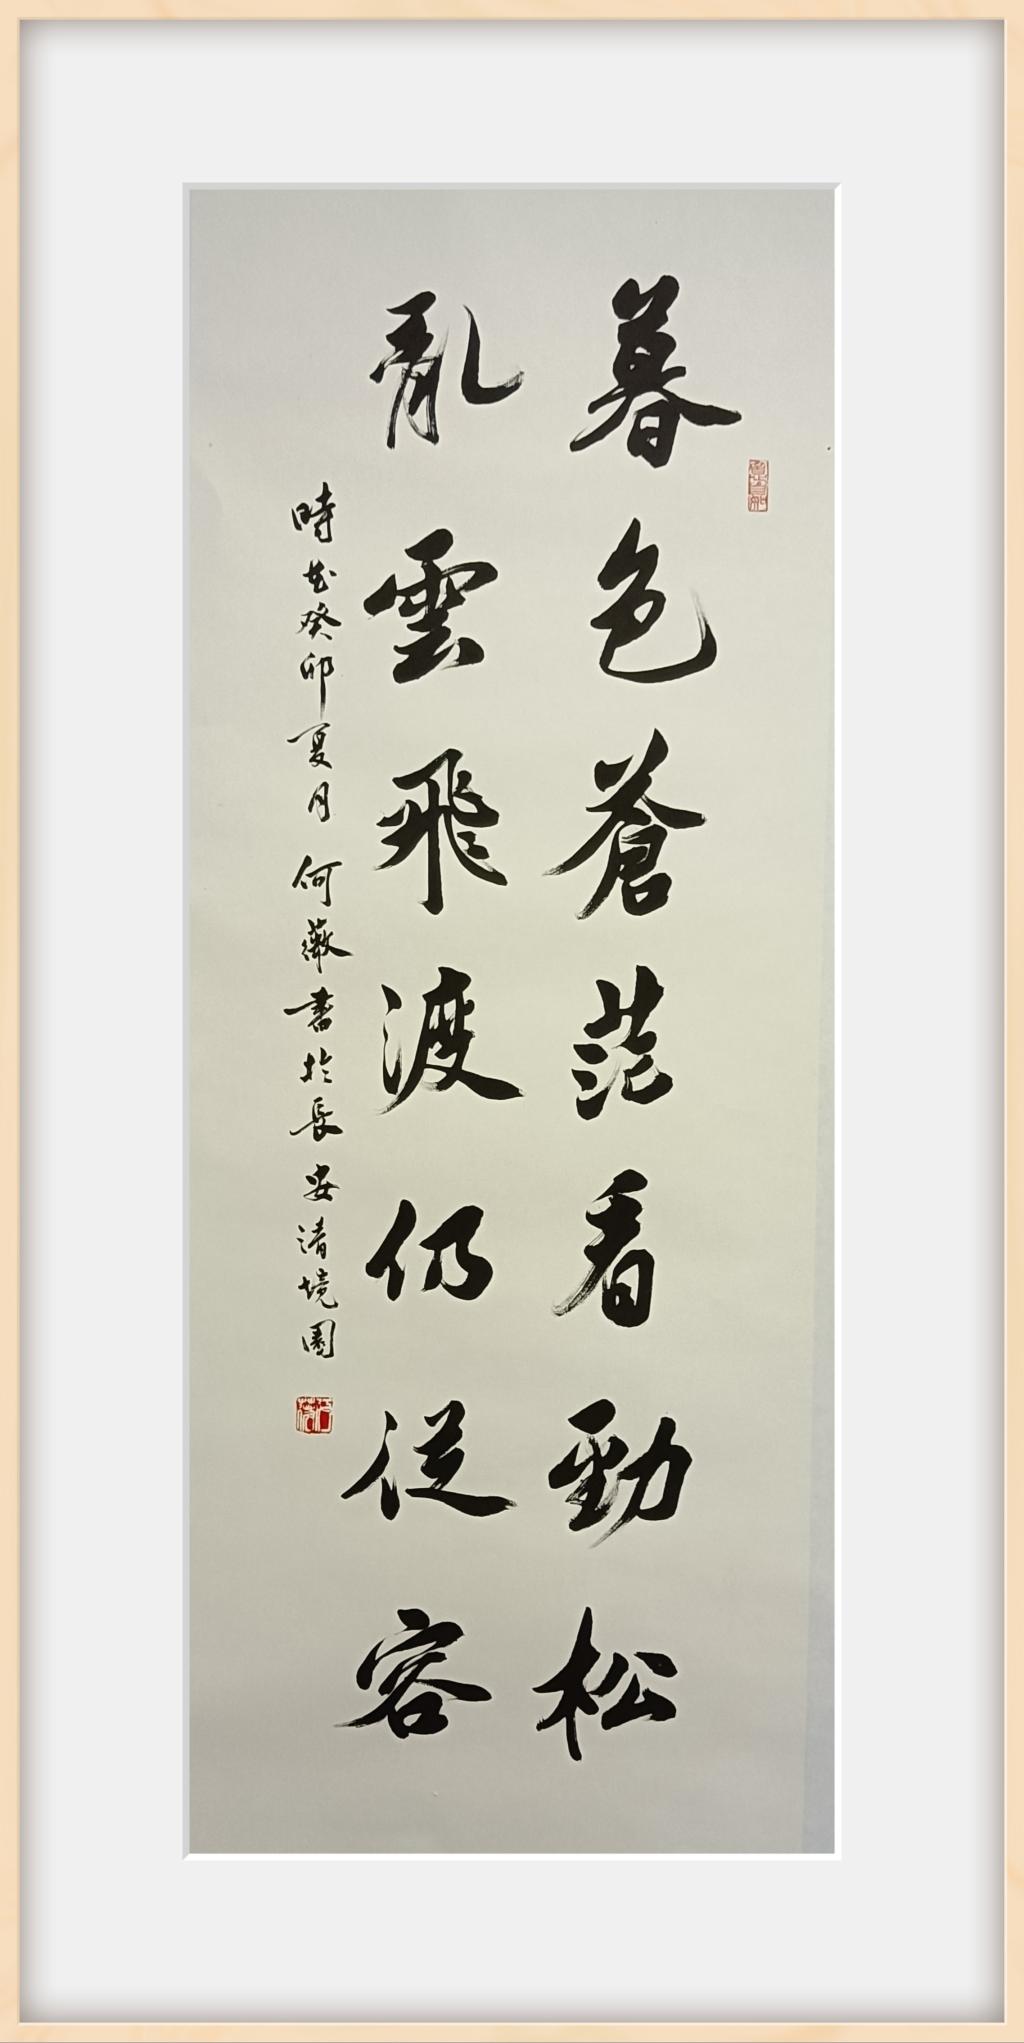 暮色蒼茫看勁松
亂雲飛渡仍從容
時在癸卯夏月何薇書於長安清境園